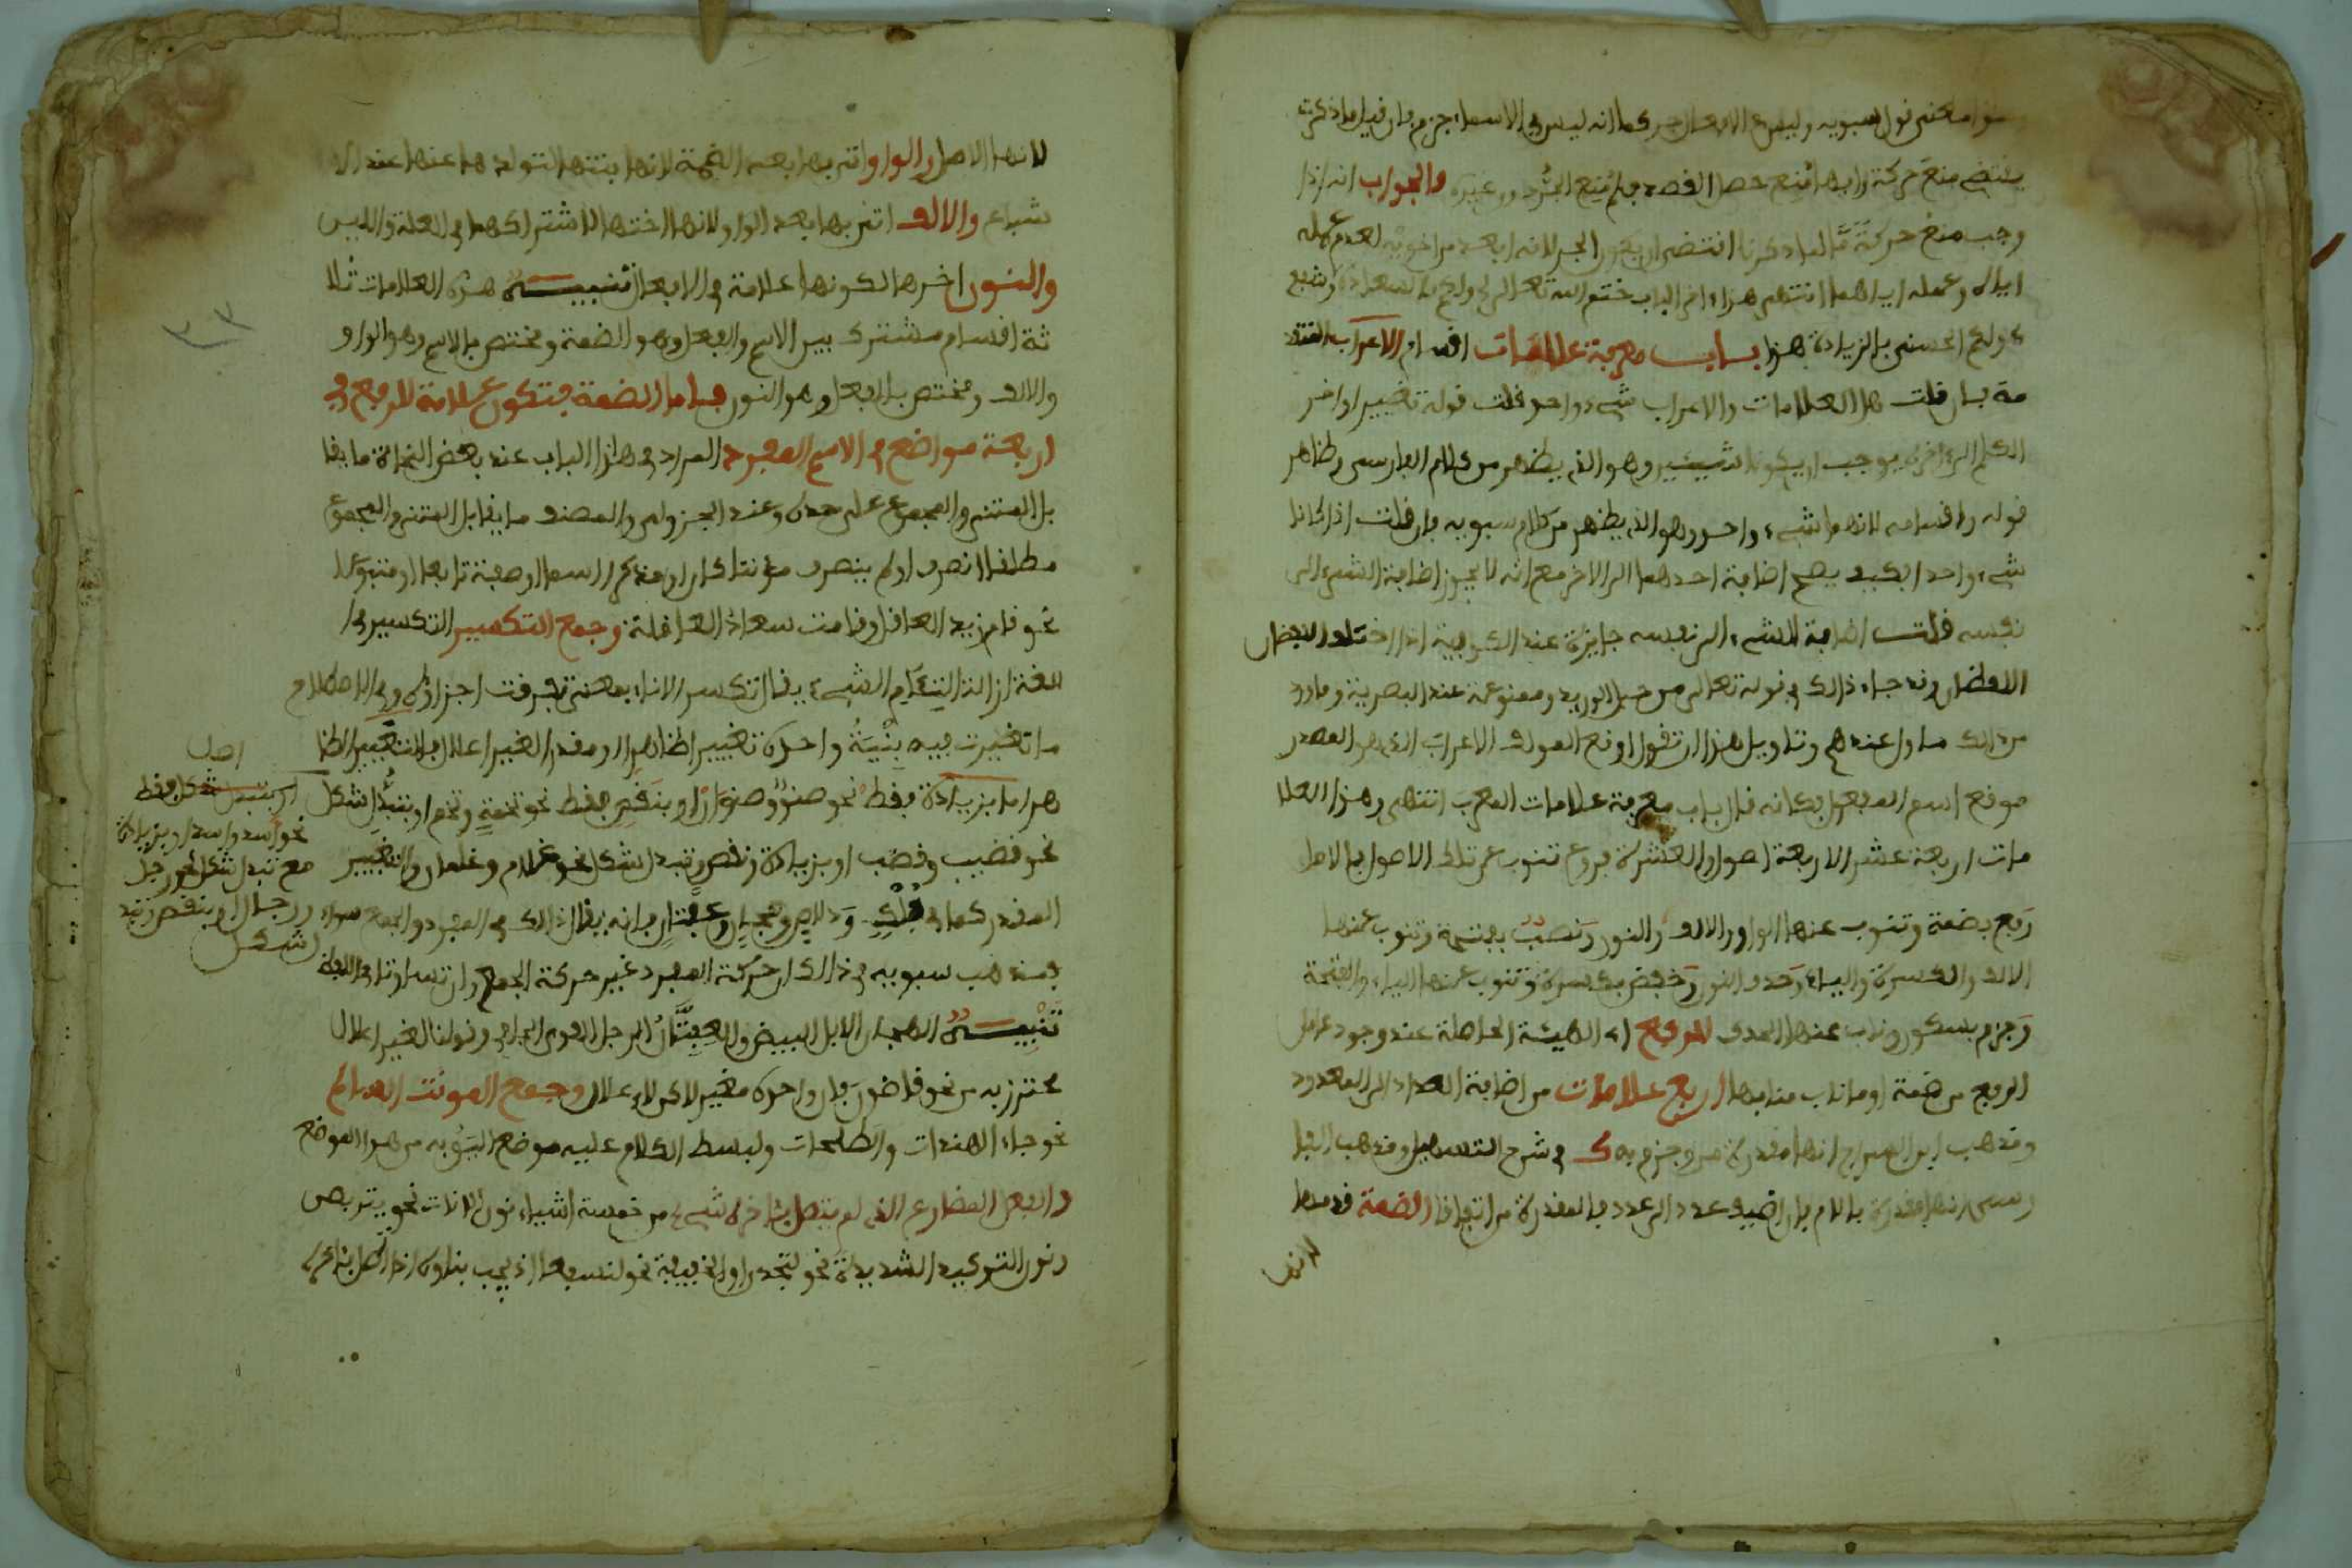 هذا معنى قول سيبويه وليس في الافعال جر كما انه ليس في الاسماء جزم فان قيل ما ذكرت
يقتضي منع حركة وايها امتنع حصل الفصد فلم امتنع الجر دون غيره والجواب انه اذا
وجب منع حركة ما لما ذكرنا اقتضى ان يكون الجر لانه ابعد من اخويه لعدم عمله
اياه وعمله اياهما انتهى هذا اخر الباب ختم الله تعالى لي ولكم بالسعادة
ولكم الحسنى بالزيادة هذا باب معرفة علامات اقسام الاعراب المتقد
مة فان قلت هل العلامات والاعراب شيء واحد قلت قوله تغيير اواخر
الكلم الى اخره يوجب ان يكونا شيئين وهو الذي يظهر من كلام الفارسي وظاهر
قوله واقسامه انهما شيء واحد وهو الذي يظهر من كلام سيبويه فان قلت اذا كانا
شيء واحد فكيف يصح اضافة احدهما الى الاخر مع انه لا يجوز اضافة الشيء الى
نفسه قلت اضافة الشيء الى نفسه جايزة عند الكوفية اذا اختلف اللفظان
اللفظان وقد جاء ذالك في قوله تعالى من حبل الوريد وممنوعة عند البصرية وما ورد
من ذالك ماول عندهم وتاويل هذا ان تقول اوقع المولف الاعراب الذي هو المصدر
موقع اسم المفعول فكانه قال باب معرفة علامات المعرب انتهى وهذا العلا
مات اربعة عشر الاربعة اصول والعشرة فروع تنوب عن تلك الاصول فالاصل
رفع بضمة وتنوب عنها الواو والالف والنون ونصب بفتحة وتنوب عنها
الالف والكسرة والياء وحذف النون وخفض بكسرة وتنوب عنها الياء والفتحة
وجزم بسكون وناب عنها الحذف للرفع اي الهيئة الحاصلة عند وجود عامل
الرفع من ضمة او ما ناب منابها اربع علامات من اضافة العدد الى المعدود
ومذهب ابن السراج انها مقدرة بمن وجزم به ك في شرح التسهيل ومذهب الفا
رسي انها مقدرة باللام فان اضيف عدد الى عدد فالمقدرة من اتفاقا الضمة قدمها
لانها
لانها الاصل والواو اتى بها بعد الضمة لانها بنتها لتولدها عنها عند الا
شباع والالف اتى بها بعد الواو لانها اختها لاشتراكهما في العلة واللين
والنون اخرها لكونها علامة في الافعال تنبيه هذه العلامات ثلا
ثة اقسام مشترك بين الاسم والفعل وهو الضمة ومختص بالاسم وهو الواو
والالف ومختص بالفعل وهو النون فاما الضمة فتكون علامة للرفع في
اربعة مواضع في الاسم المفرد المراد في هذا الباب عند بعض النحاة ما يقا
بل المثنى والمجموع على حده وعند الجزولي والمصنف ما يقابل المثنى والمجموع
مطلقا انصرف او لم ينصرف مونثا كان او مذكرا اسما او صفة تابعا او متبوعا
نحو قام زيد العاقل وقامت سعاد العاقلة وجمع التكسير التكسير في ا
للغة ازالة التئام الشيء يقال تكسر الاناء بمعنى تفرقت اجزاؤه وفي الاصطلاح
ما تغيرت فيه بنية واحده تغييرا ظاهرا او مقدرا لغير اعلال فالتغيير الظا
هر اما بزيادة فقط نحو صنو وصنوان او بنقص فقط نحو تخمة وتخم او بتبدل شكل
نحو قضيب وقضب او بزيادة ونقص وتبدل الشكل نحو غلام وغلمان والتغيير
المقدر كما في فلك ودلاص وهجان وعفتان فانه يقال ذالك في المفرد والجمع سواء
فمذهب سيبويه في ذالك ان حركة المفرد غير حركة الجمع وان تساوتا في اللفظ
تنبيه الهجان الابل البيض والعفتان الرجل القوي الجافي وقولنا لغير اعلال
نحترز به من نحو قاضون فان واحده مغير لاكن لاعلال وجمع المونث السالم
نحو جاء الهندات والطلحات ولبسط الكلام عليه موضع اليق به من هذا الموضع
والفعل المضارع الذي لم يتصل باخره شيء من خمسة اشياء نون الاناث نحو يتربصن
ونون التوكيد الشديدة نحو لتجدن او الخفيفة نحو لنسفعا اذ يجب بناوه
اصل
او بتبدل شكل فقط
نحو اسد واسد او بزيادة
مع تبدل شكل نحو رجل
ورجال او بنقص وتبد
ل شكل